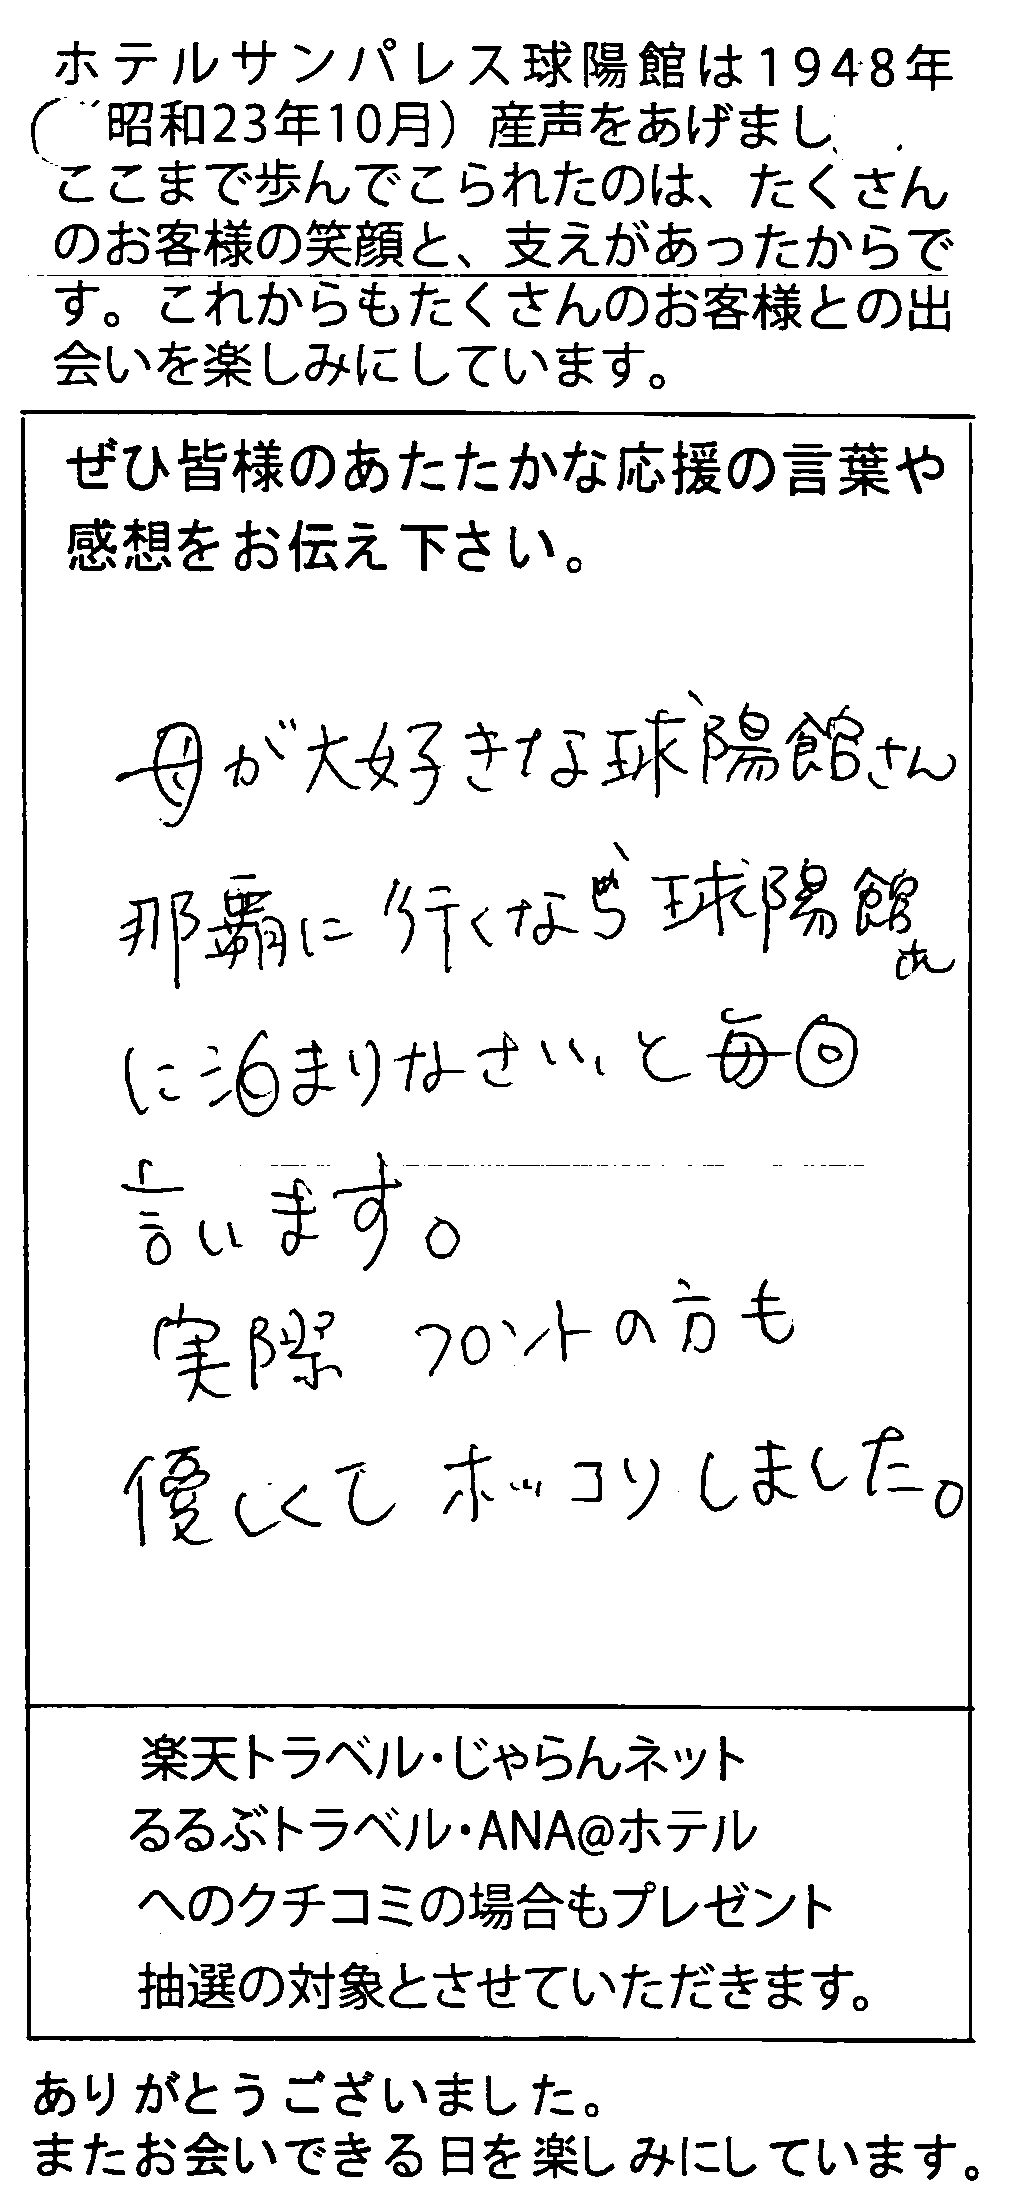 ホテルサンパレス球陽館は1948年
(昭和23年10月）産声をあげまし
ここまで歩んでこられたのは、たくさん
のお客様の笑顔と、支えがあったからで
す。これからもたくさんのお客様との出
会いを楽しみにしています。
ぜひ皆様のあたたかな応援の言葉や
感想をお伝え下さい。
母が大好きな球陽館さん
那覇に行くなら球陽館さん
に泊まりなさい、と毎回
言います。
実際 フロントの方も
優しくて ホッコリしました。
楽天トラベル・じゃらんネット
るるぶトラベル・ANA@ホテル
へのクチコミの場合もプレゼント
抽選の対象とさせていただきます。
ありがとうございました。
またお会いできる日を楽しみにしています。